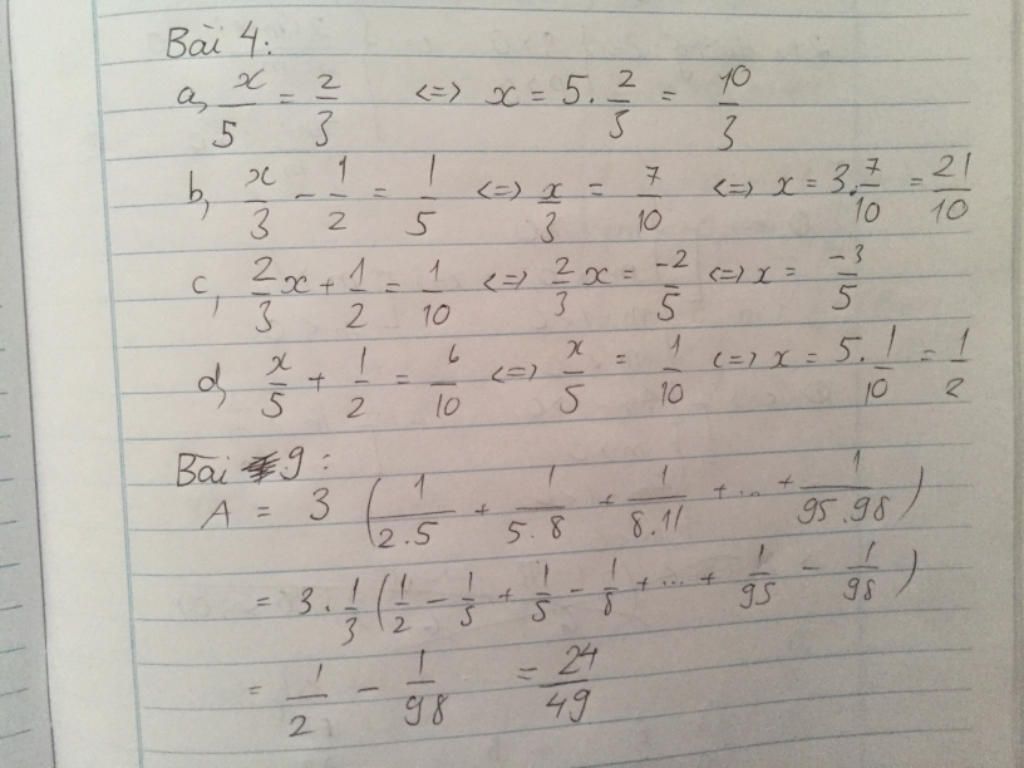 Bài 4:
a, x/5 = 2/3 <=> x = 5 . 2/3 = 10/3
b, x/3 - 1/2 = 1/5 <=> x/3 = 7/10 <=> x = 3 . 7/10 = 21/10
c, 2/3 x + 1/2 = 1/10 <=> 2/3 x = -2/5 <=> x = -3/5
d, x/5 + 1/2 = 6/10 <=> x/5 = 1/10 <=> x = 5 . 1/10 = 1/2
Bài 9:
A = 3 (1/2.5 + 1/5.8 + 1/8.11 + ... + 1/95.98)
= 3 . 1/3 (1/2 - 1/5 + 1/5 - 1/8 + ... + 1/95 - 1/98)
= 1/2 - 1/98 = 24/49